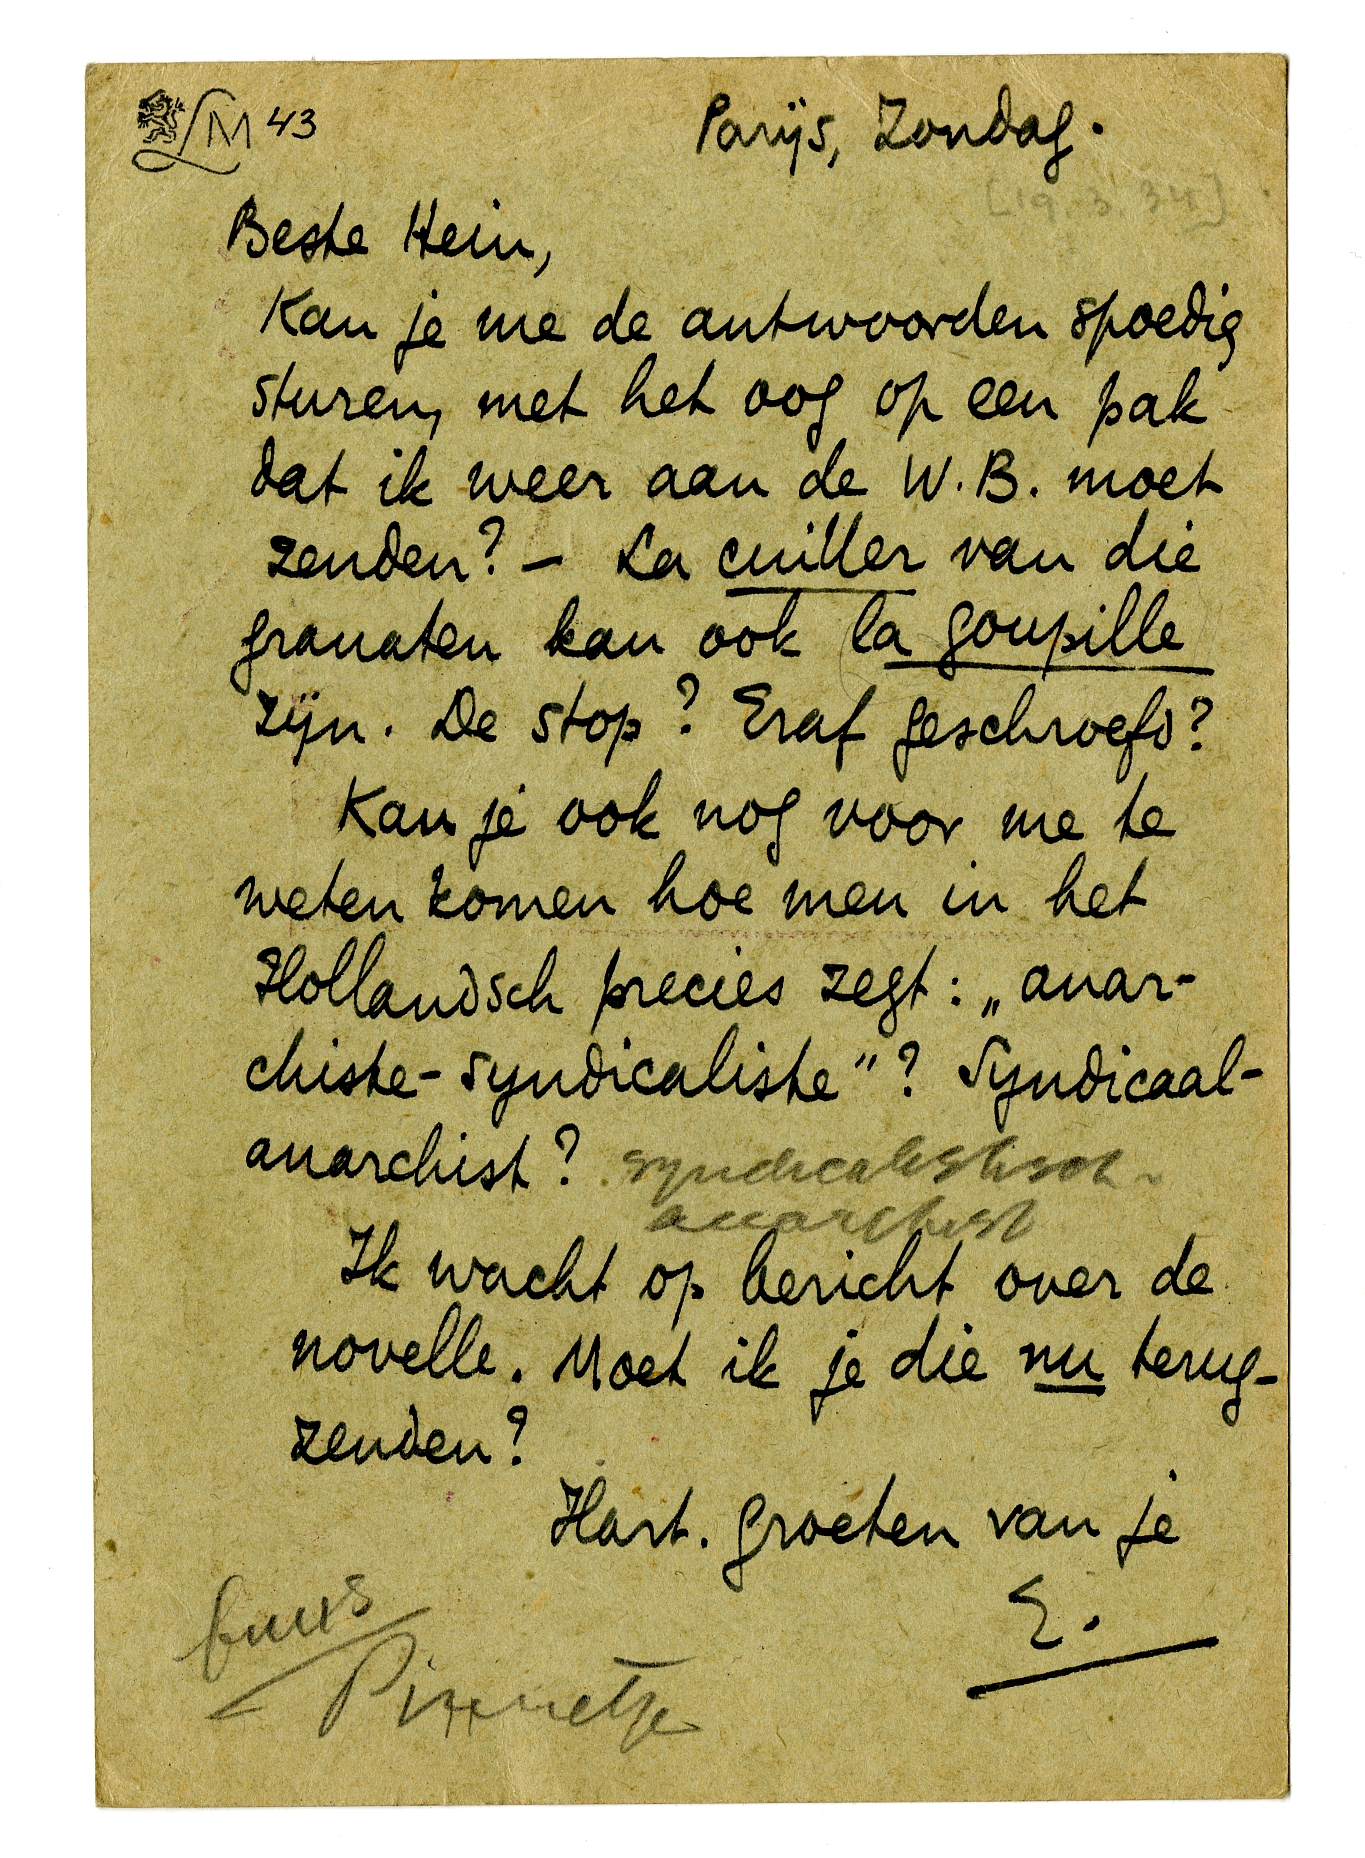 LM 43
Parijs, Zondag.
[19.3.34]
Beste Hein,
Kan je me de antwoorden spoedig
sturen, met het oog op een pak
dat ik weer aan de W.B. moet
zenden? – La cuiller van die
granaten kan ook la goupille
zijn. De stop? Eraf geschroefd?
Kan je ook nog voor me te
weten komen hoe men in het
Hollandsch precies zegt: „anar-
chiste-syndicaliste"? Syndicaal-
anarchist? syndicalistisch-
anarchist
Ik wacht op bericht over de
novelle. Moet ik je die nu terug-
zenden?
Hart. groeten van je
E.
Pinnetje